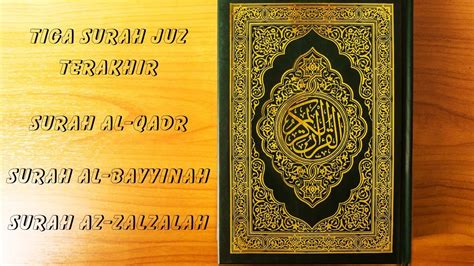 TIGA SURAH JUZ
TERAKHIR
SURAH AL-QADR
SURAH AL-BAYYINAH
SURAH AZ-ZALZALAH
القرآن الكريم